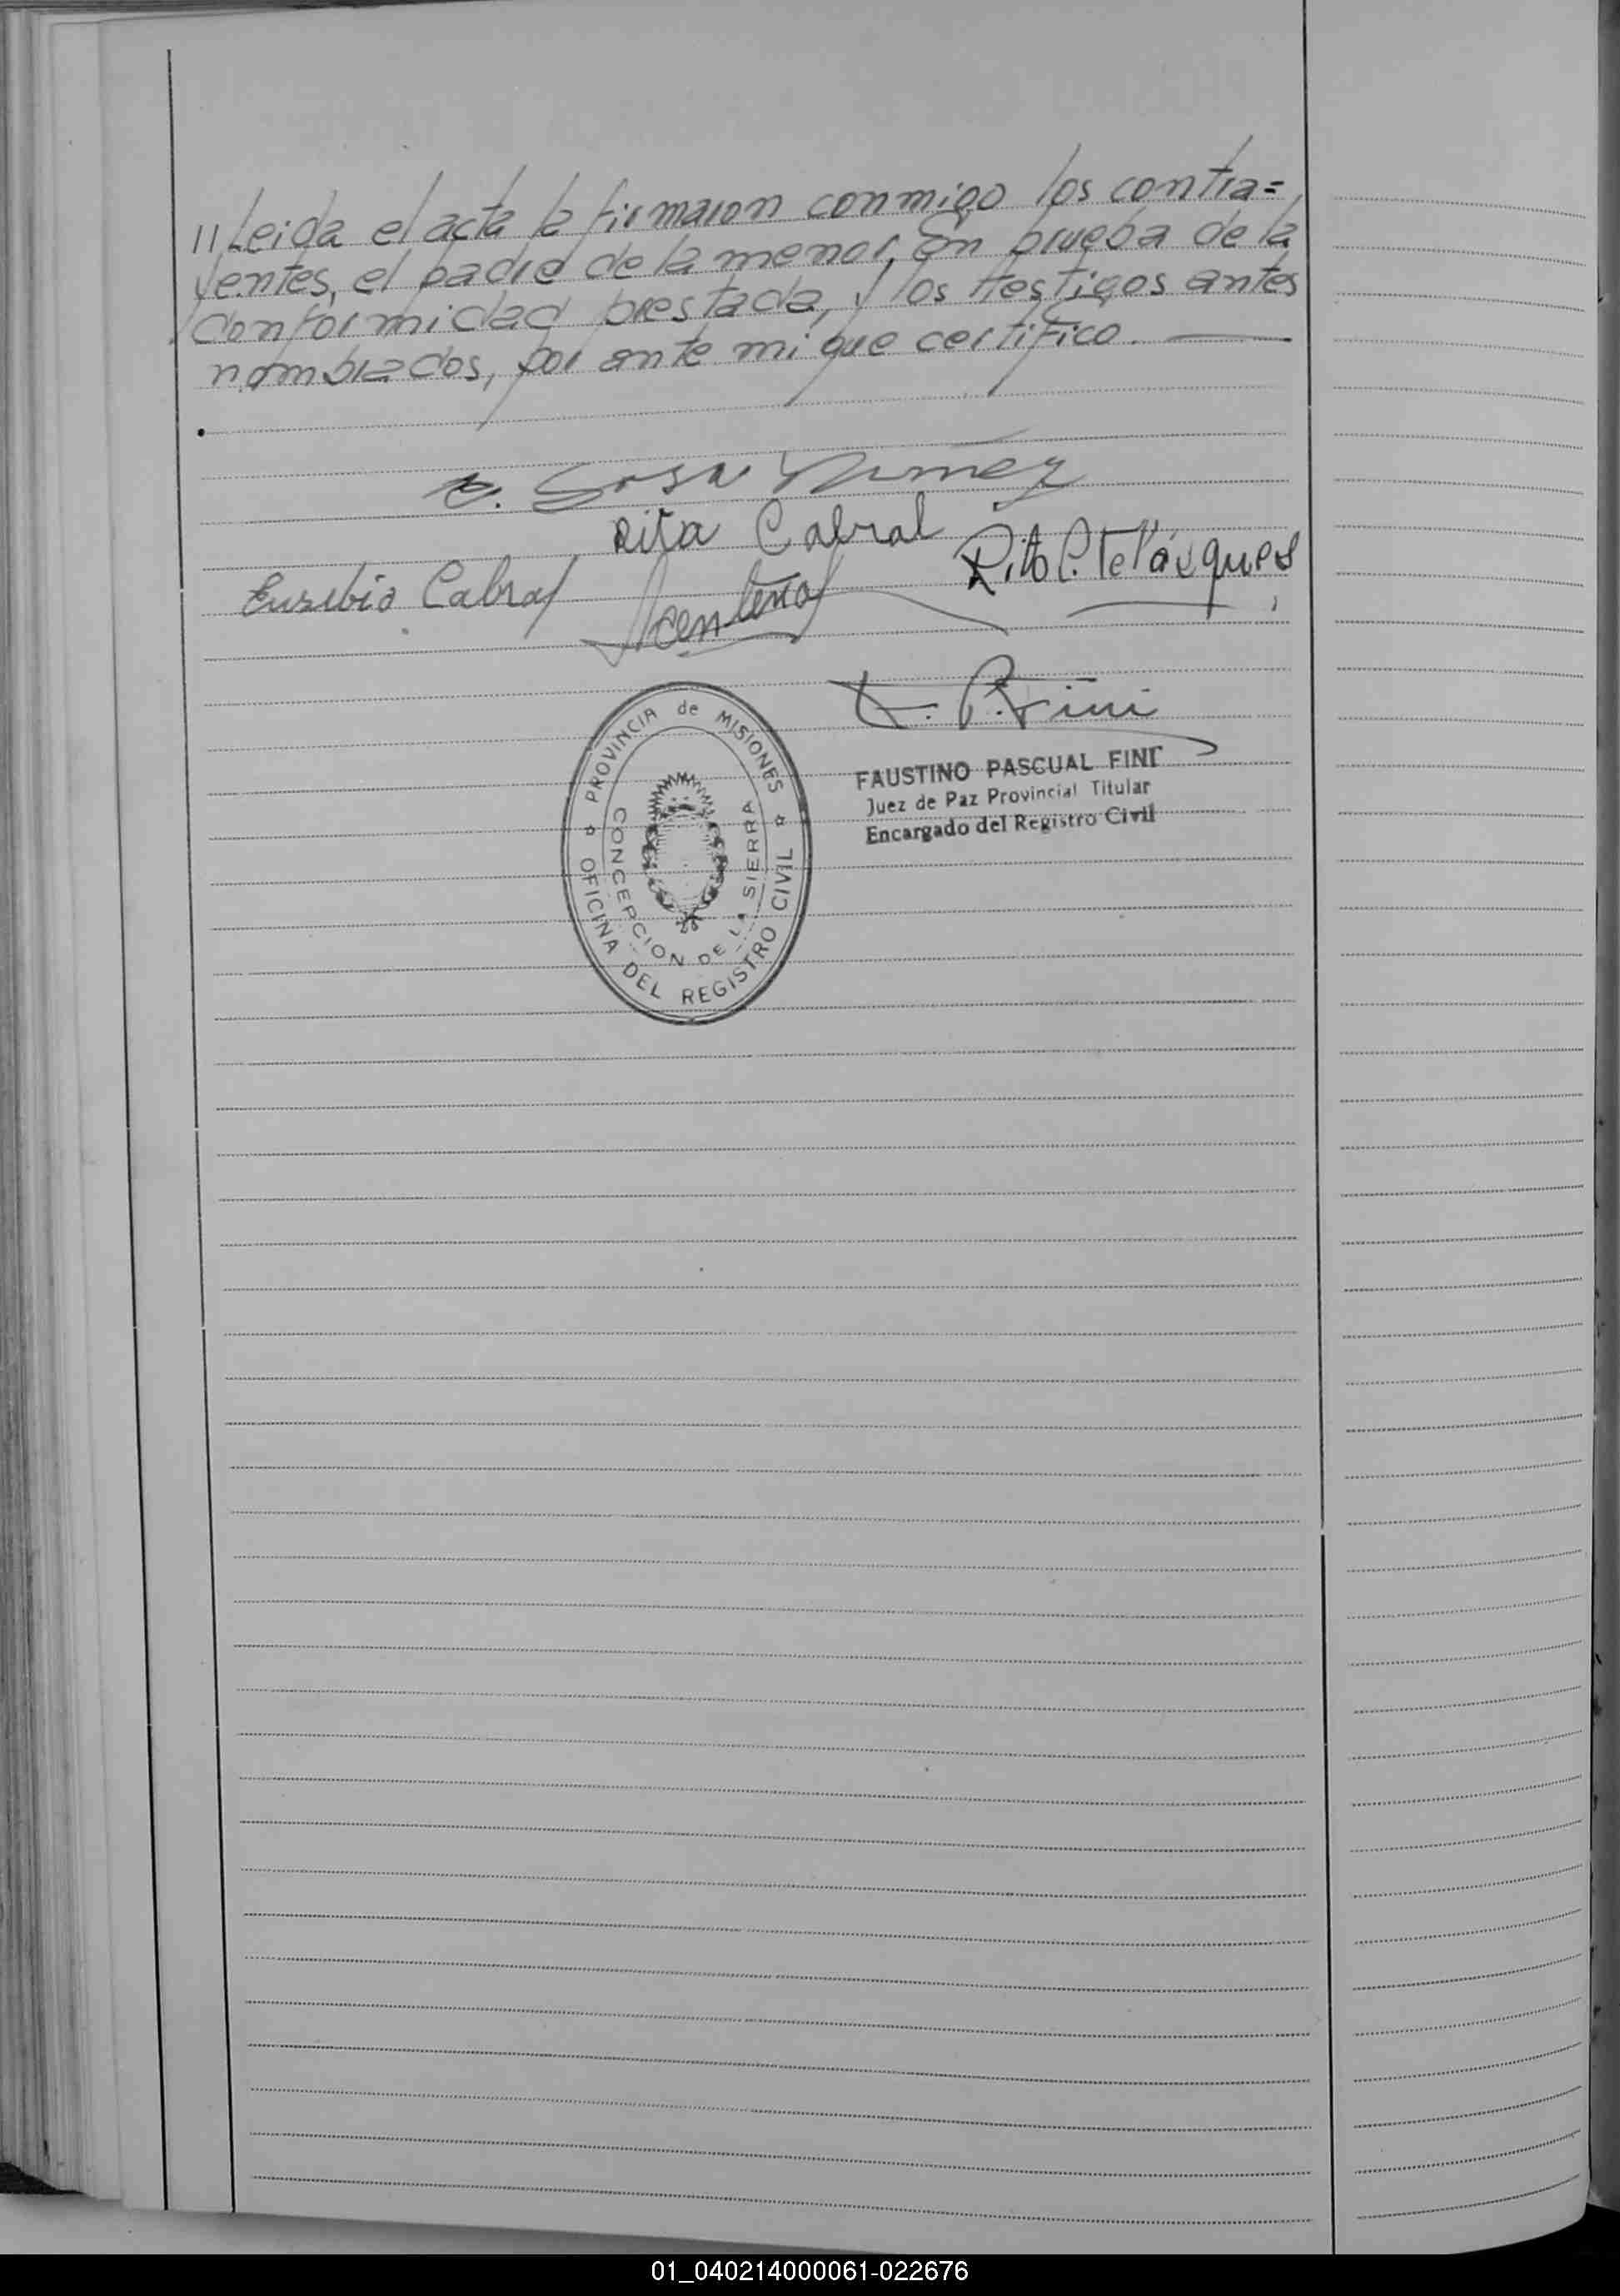 //Leida el acta la firmaron conmigo los contra=
yentes, el padre de la menor, en prueba de la
conformidad prestada, y los testigos antes
nombrados, por ante mi que certifico.
Sosa Nuñez
Rita Cabral
Eusebio Cabral
F. P. Fini
FAUSTINO PASCUAL FINI
Juez de Paz Provincial Titular
Encargado del Registro Civil
PROVINCIA de MISIONES
OFICINA DEL REGISTRO CIVIL
CONCEPCION DE LA SIERRA
01_040214000061-022676